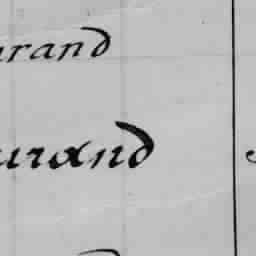 urand
urand